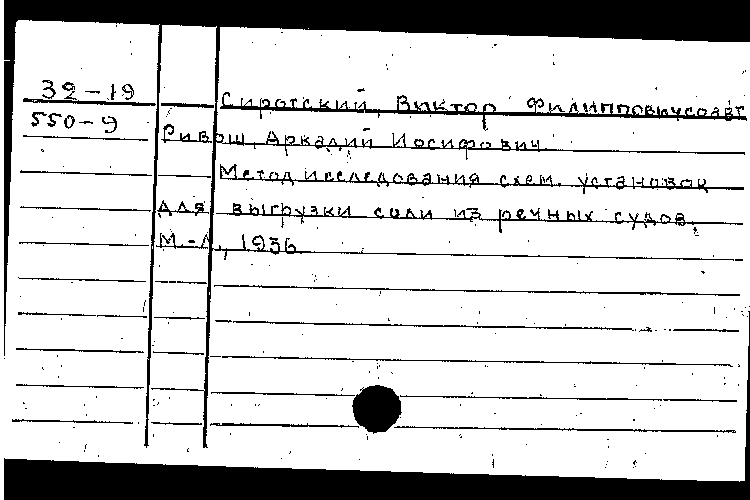 32-19
Сиротский, Виктор Филиппович, соавт.
550-9
Ривош, Аркадий Иосифович.
Метод исследования схем. установок
для выгрузки соли из речных судов.
М.-Л., 1936